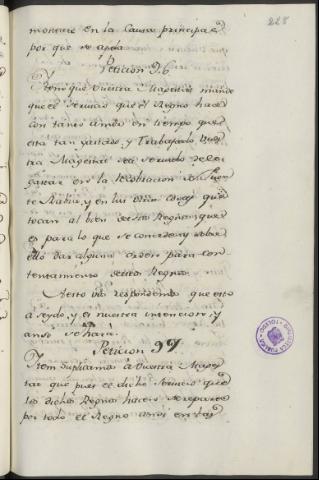 228
moniere en la Causa principal
por que se apela
Peticion 96
Iten que Vuestra Magestad mande
que el servicio que el Regno hace
con tanto amor en tiempo que
esta tan gastado, y Trabajado Vues
tra Magestad sea servido de lo
gastar en la
te Rabia, y en las otras cosas que
tocan al bien destos Regnos, que
es para lo que se concede, y sobre
ello dar alguna orden para con-
tentamiento destos Regnos
A esto vos respondemos que esto
a seydo, y es nuestra intencion, y
ansi se hará.
Peticion 97
Iten suplicamos á Vuestra Mages
tad que pues el dicho servicio que
los dichos Regnos hacen se reparte
por todo el Regno
BIBLIOTECA PUBLICA
TOLEDO